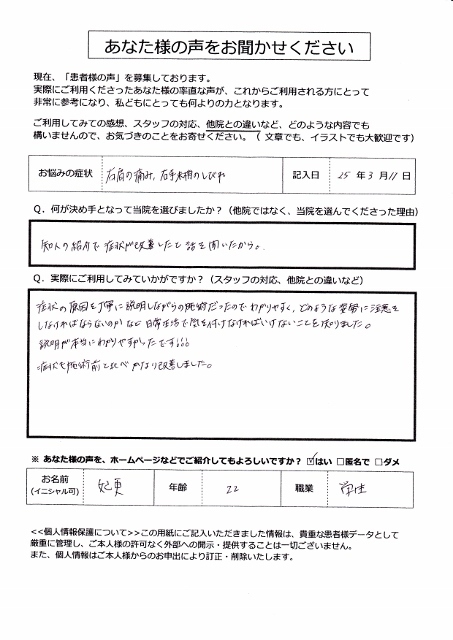 あなた様の声をお聞かせください
現在、「患者様の声」を募集しております。
実際にご利用くださったあなた様の率直な声が、これからご利用される方にとって
非常に参考になり、私どもにとっても何よりの力となります。
ご利用してみての感想、スタッフの対応、他院との違いなど、どのような内容でも
構いませんので、お気づきのことをお寄せください。（ 文章でも、イラストでも大歓迎です）
お悩みの症状 右肩の痛み, 右手末梢のしびれ 記入日 25 年 3 月 11 日
Q．何が決め手となって当院を選びましたか？（他院ではなく、当院を選んでくださった理由）
知人の紹介で 症状が改善したと 話を聞いたから。
Q．実際にご利用してみていかがですか？（スタッフの対応、他院との違いなど）
症状の原因を丁寧に説明しながらの施術だったのでわかりやすく、どのような姿勢に注意を
しなければならないのかなど 日常生活で気を付けなければいけないことを知りました。
説明が本当にわかりやすかったです!!!
症状も施術前と比べ かなり改善しました。
※ あなた様の声を、ホームページなどでご紹介してもよろしいですか？ ☑はい □匿名で □ダメ
お名前
(イニシャル可) 年齢 22 職業 学生
<<個人情報保護について>>この用紙にご記入いただきました情報は、貴重な患者様データとして
厳重に管理し、ご本人様の許可なく外部への開示・提供することは一切ございません。
また、個人情報はご本人様からのお申出により訂正・削除いたします。